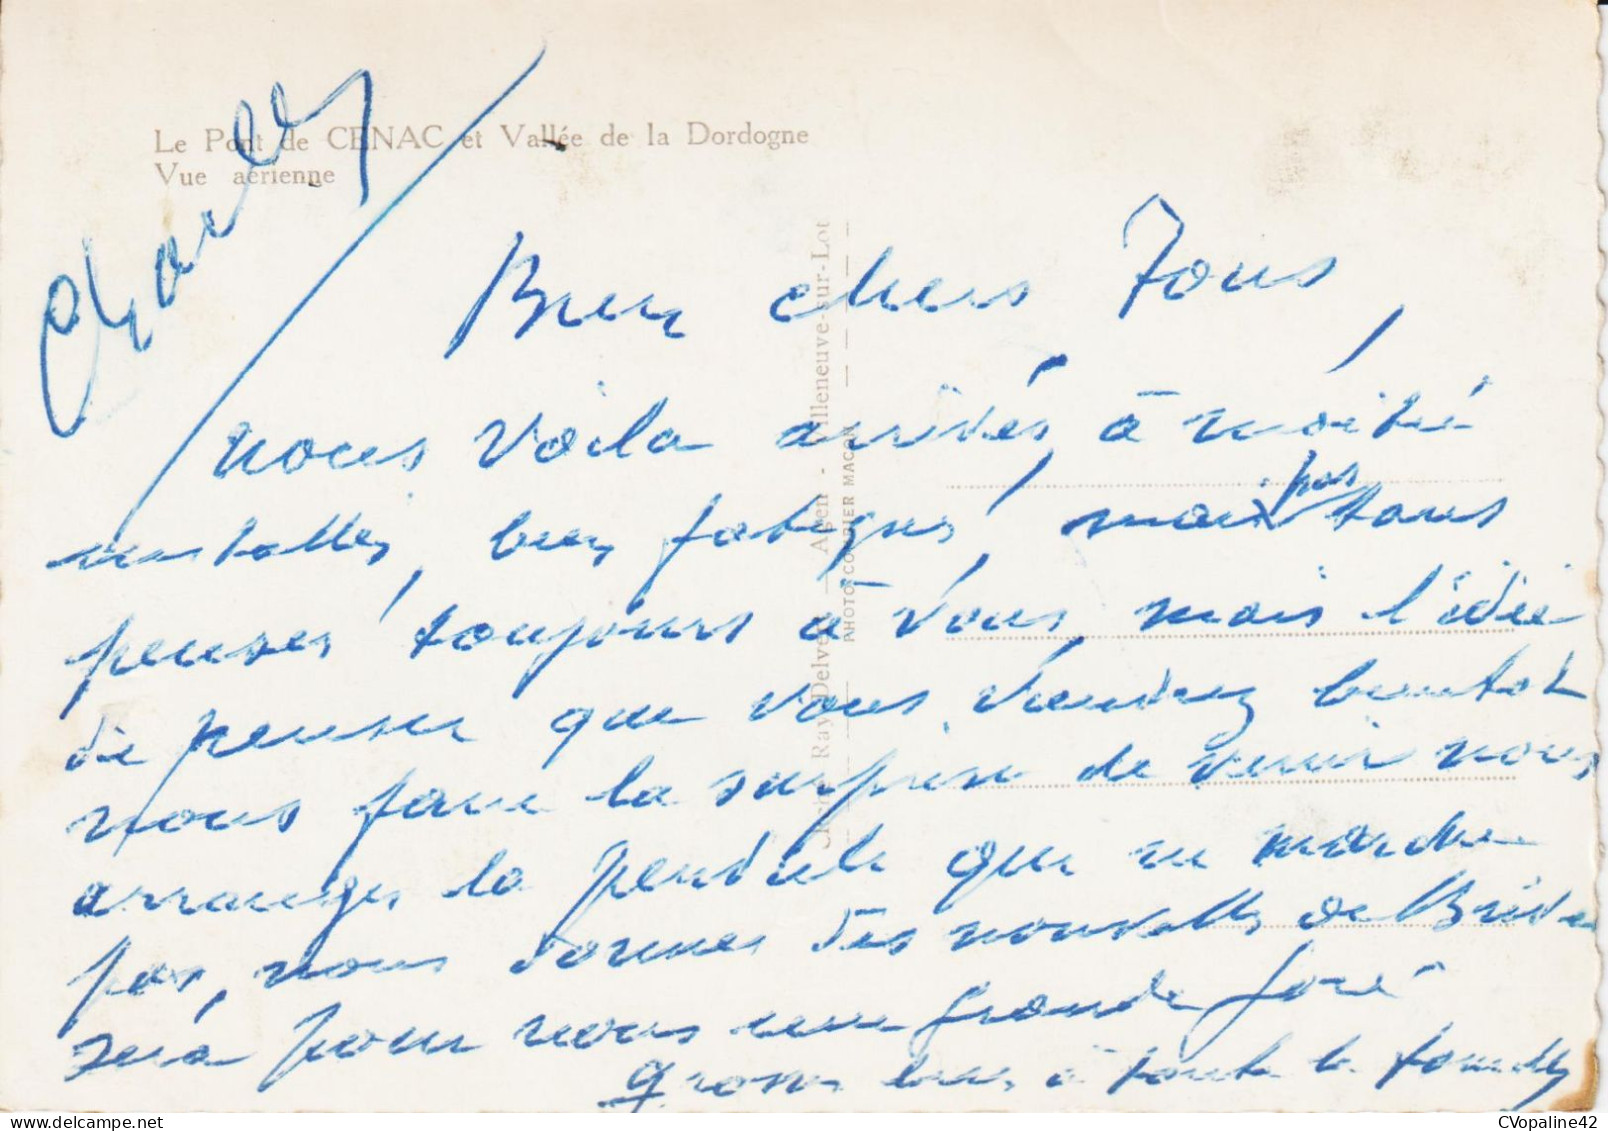 Le Pont de CENAC et Vallée de la Dordogne
Vue aérienne
Charles
Bien chers Tous,
nous voila arrivés, à moitié
installés, bien fatigués, mais pas sans
penser toujours à vous, mais l'idée
de penser que vous viendrez bientot
nous faire la surprise de venir nous
arranger la pendule qui ne marche
pas, nous donner des nouvelles de Brive
sera pour nous une grande joie
Grosses bises à toute la famille
Ray Delvert — Agen - Villeneuve-sur-Lot
PHOTOCOURIER MACON
CVopaline42